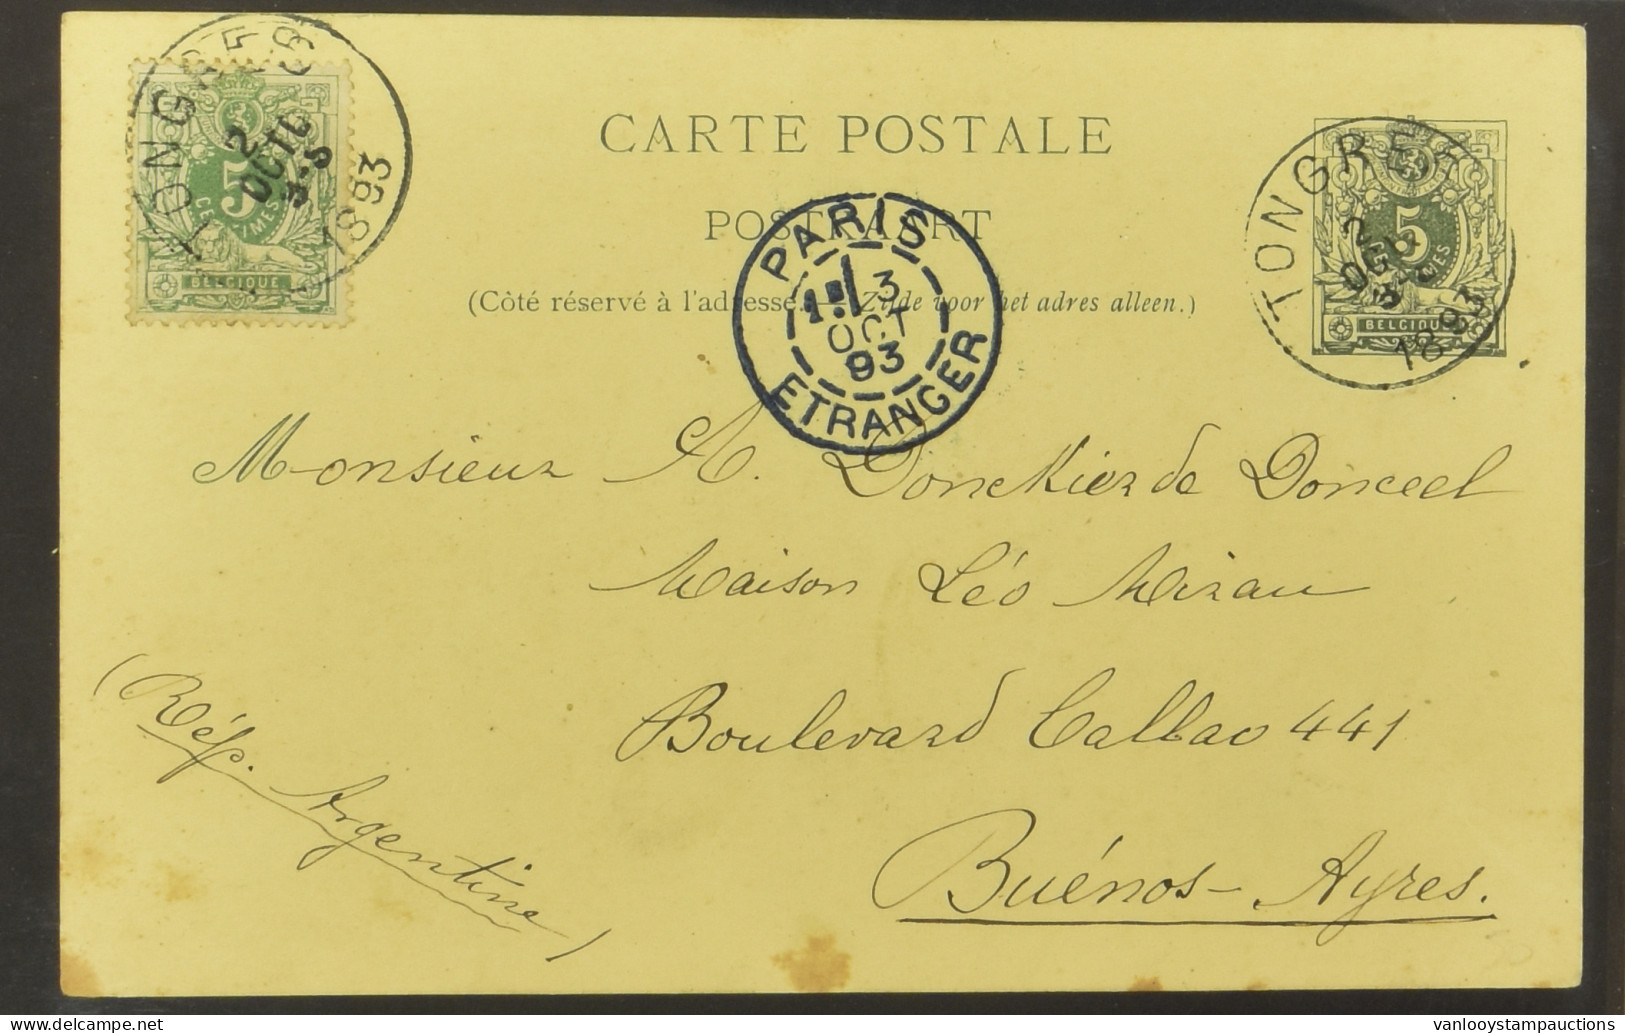 TONGRES
2
OCTO
3-S
1893
5
CENTIMES
BELGIQUE
CARTE POSTALE
POSTKAART
(Côté réservé à l'adresse. — Zijde voor het adres alleen.)
PARIS
3
OCT
93
ETRANGER
TONGRES
2
1893
5
BELGIQUE
Monsieur A. Donckier de Donceel
Maison Léo Mirau
Boulevard Callao 441
Buénos-Ayres.
(Rép. Argentine)
50
www.delcampe.net
vanlooystampauctions